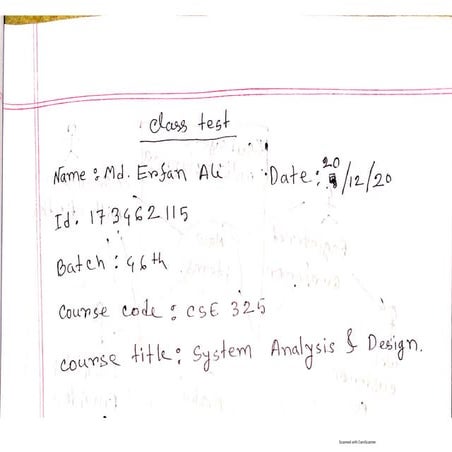 Class test
Name : Md. Erfan Ali Date: 20/12/20
Id. 173462115
Batch : 46th
Course code : CSE 325
course title: System Analysis & Design.
Scanned with CamScanner